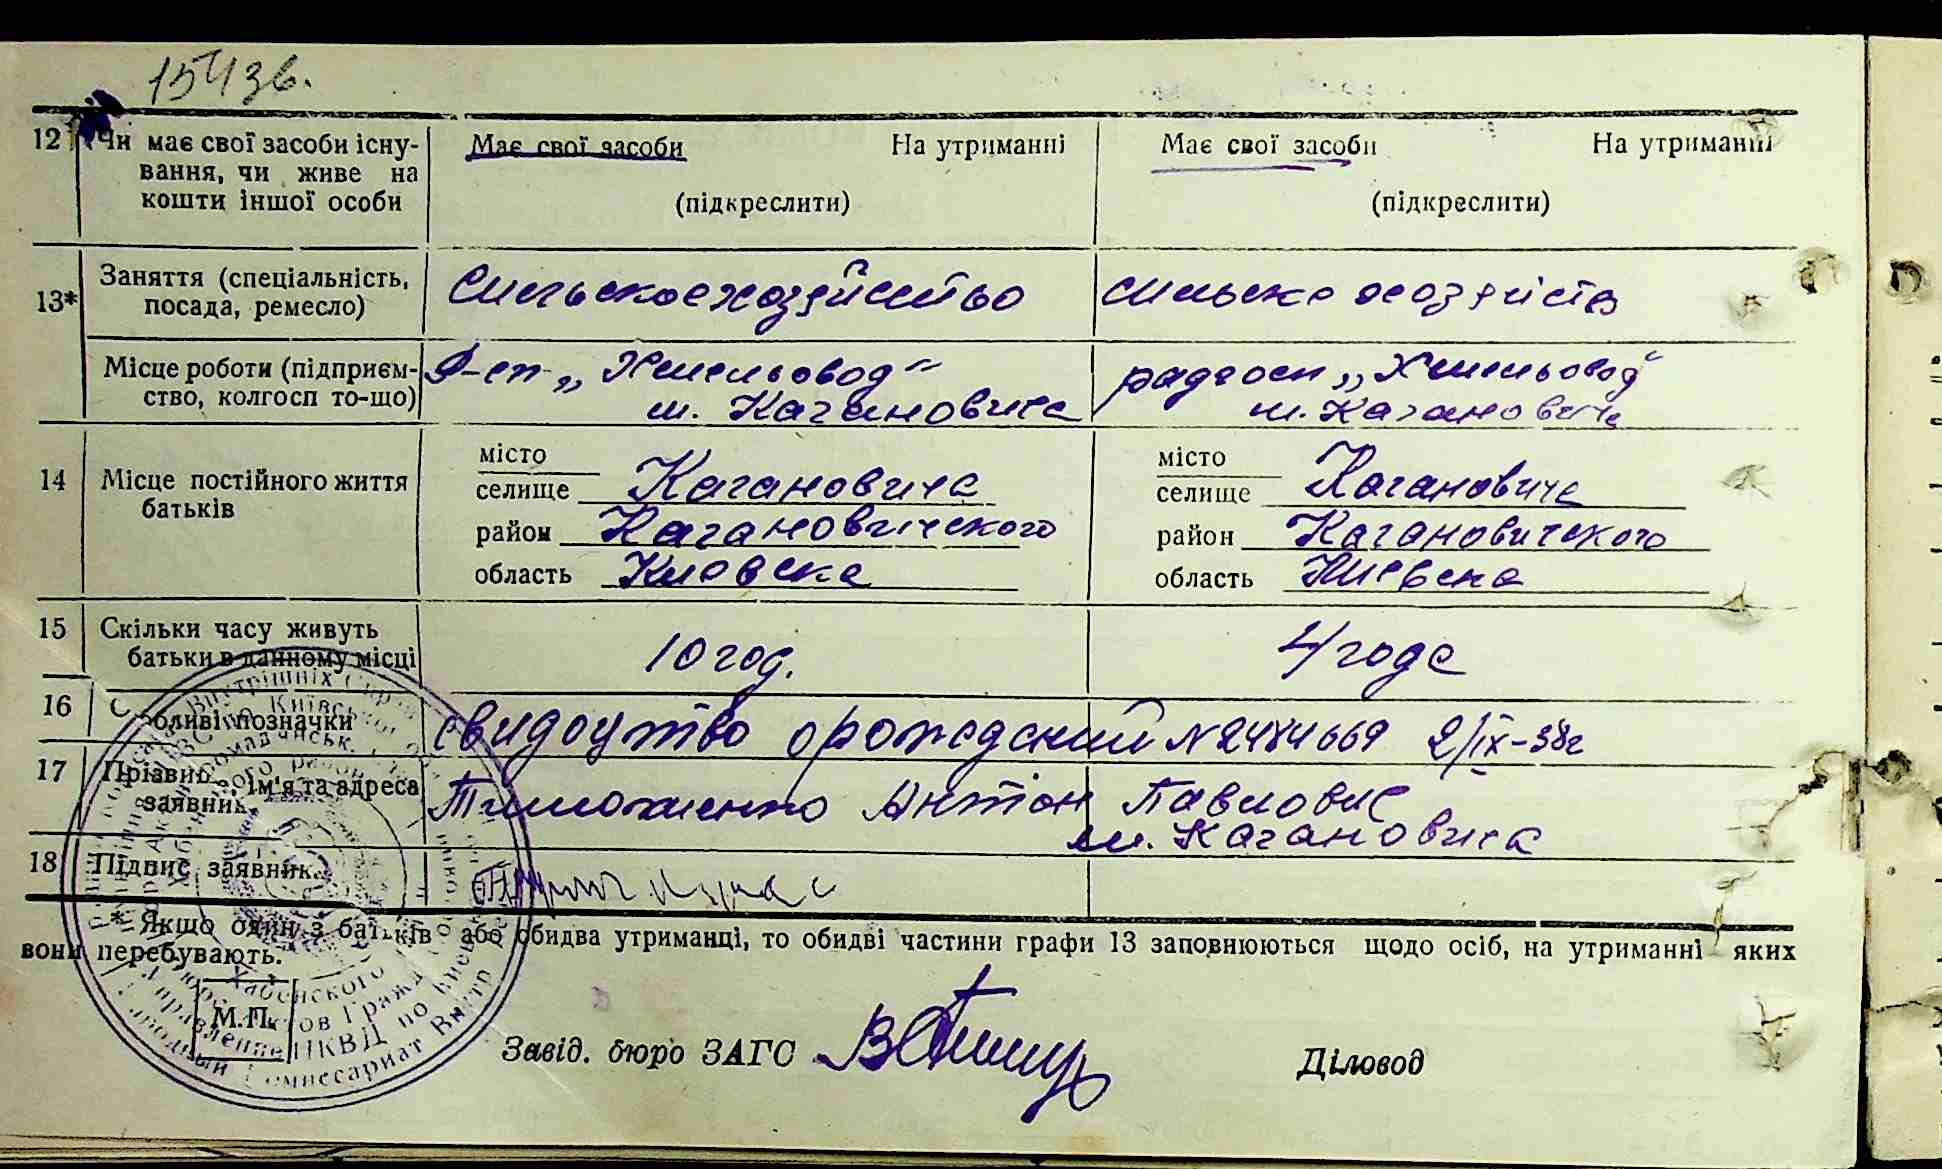 12 Чи має свої засоби існу-
вання, чи живе на
кошти іншої особи
Має свої засоби На утриманні
(підкреслити)
Має свої засоби На утриманні
(підкреслити)
13* Заняття (спеціальність,
посада, ремесло)
сильскоехозяйство
Місце роботи (підприєм-
ство, колгосп то-що)
„Хмельовод"
м. Кагановича
радгосп „Хмельовод"
м. Кагановича
14 Місце постійного життя
батьків
місто
селище Кагановича
район Кагановичского
область
місто
селище Кагановича
район Кагановичского
область Киевска
15 Скільки часу живуть
батьки в данному місці
10 год.
4 года
16 Особливі позначки
свидоцтво о рождений N 2484669 2/IX-38г
17 Прізвище, ім'я та адреса
заявника
Тимошенко Антон Павлович
м. Кагановича
18 Підпис заявника
* Якщо один з батьків або обидва утриманці, то обидві частини графи 13 заповнюються щодо осіб, на утриманні яких
вони перебувають.
М.П.
Завід. бюро ЗАГС
Діловод